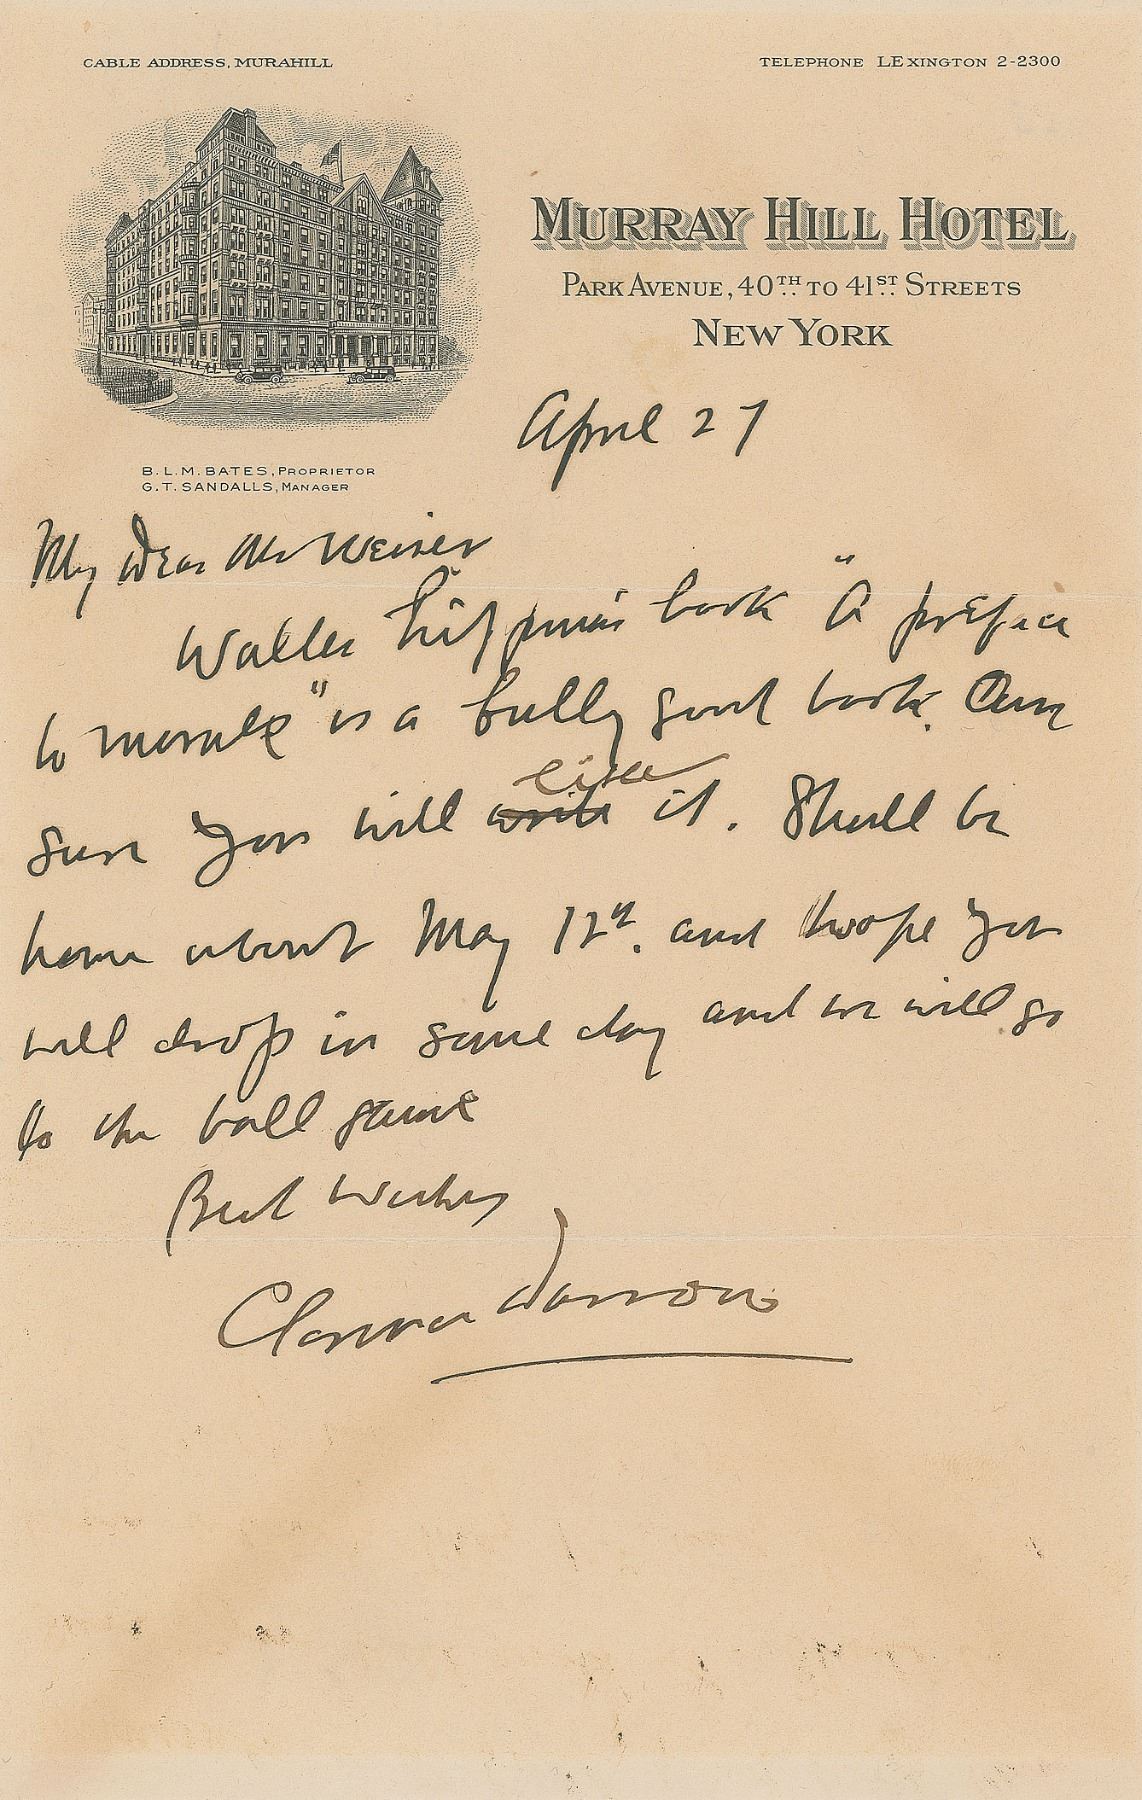 CABLE ADDRESS, MURAHILL
TELEPHONE LEXINGTON 2-2300
MURRAY HILL HOTEL
PARK AVENUE, 40TH TO 41ST STREETS
NEW YORK
B.L.M. BATES, PROPRIETOR
G.T. SANDALLS, MANAGER
April 27
My Dear Mr Weiner
Walter Lippman's book "A preface
to morals" is a bully good book. Am
sure you will write like it. Shall be
home about May 12th. and hope you
will drop in some day and we will go
to the ball game
Best Wishes
Clarence Darrow